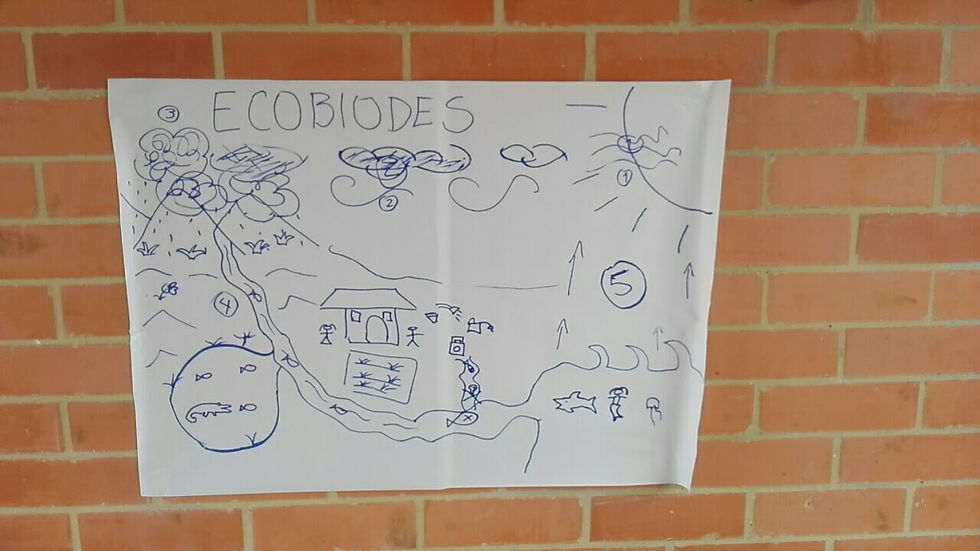 ECOBIODES
3
2
1
4
5